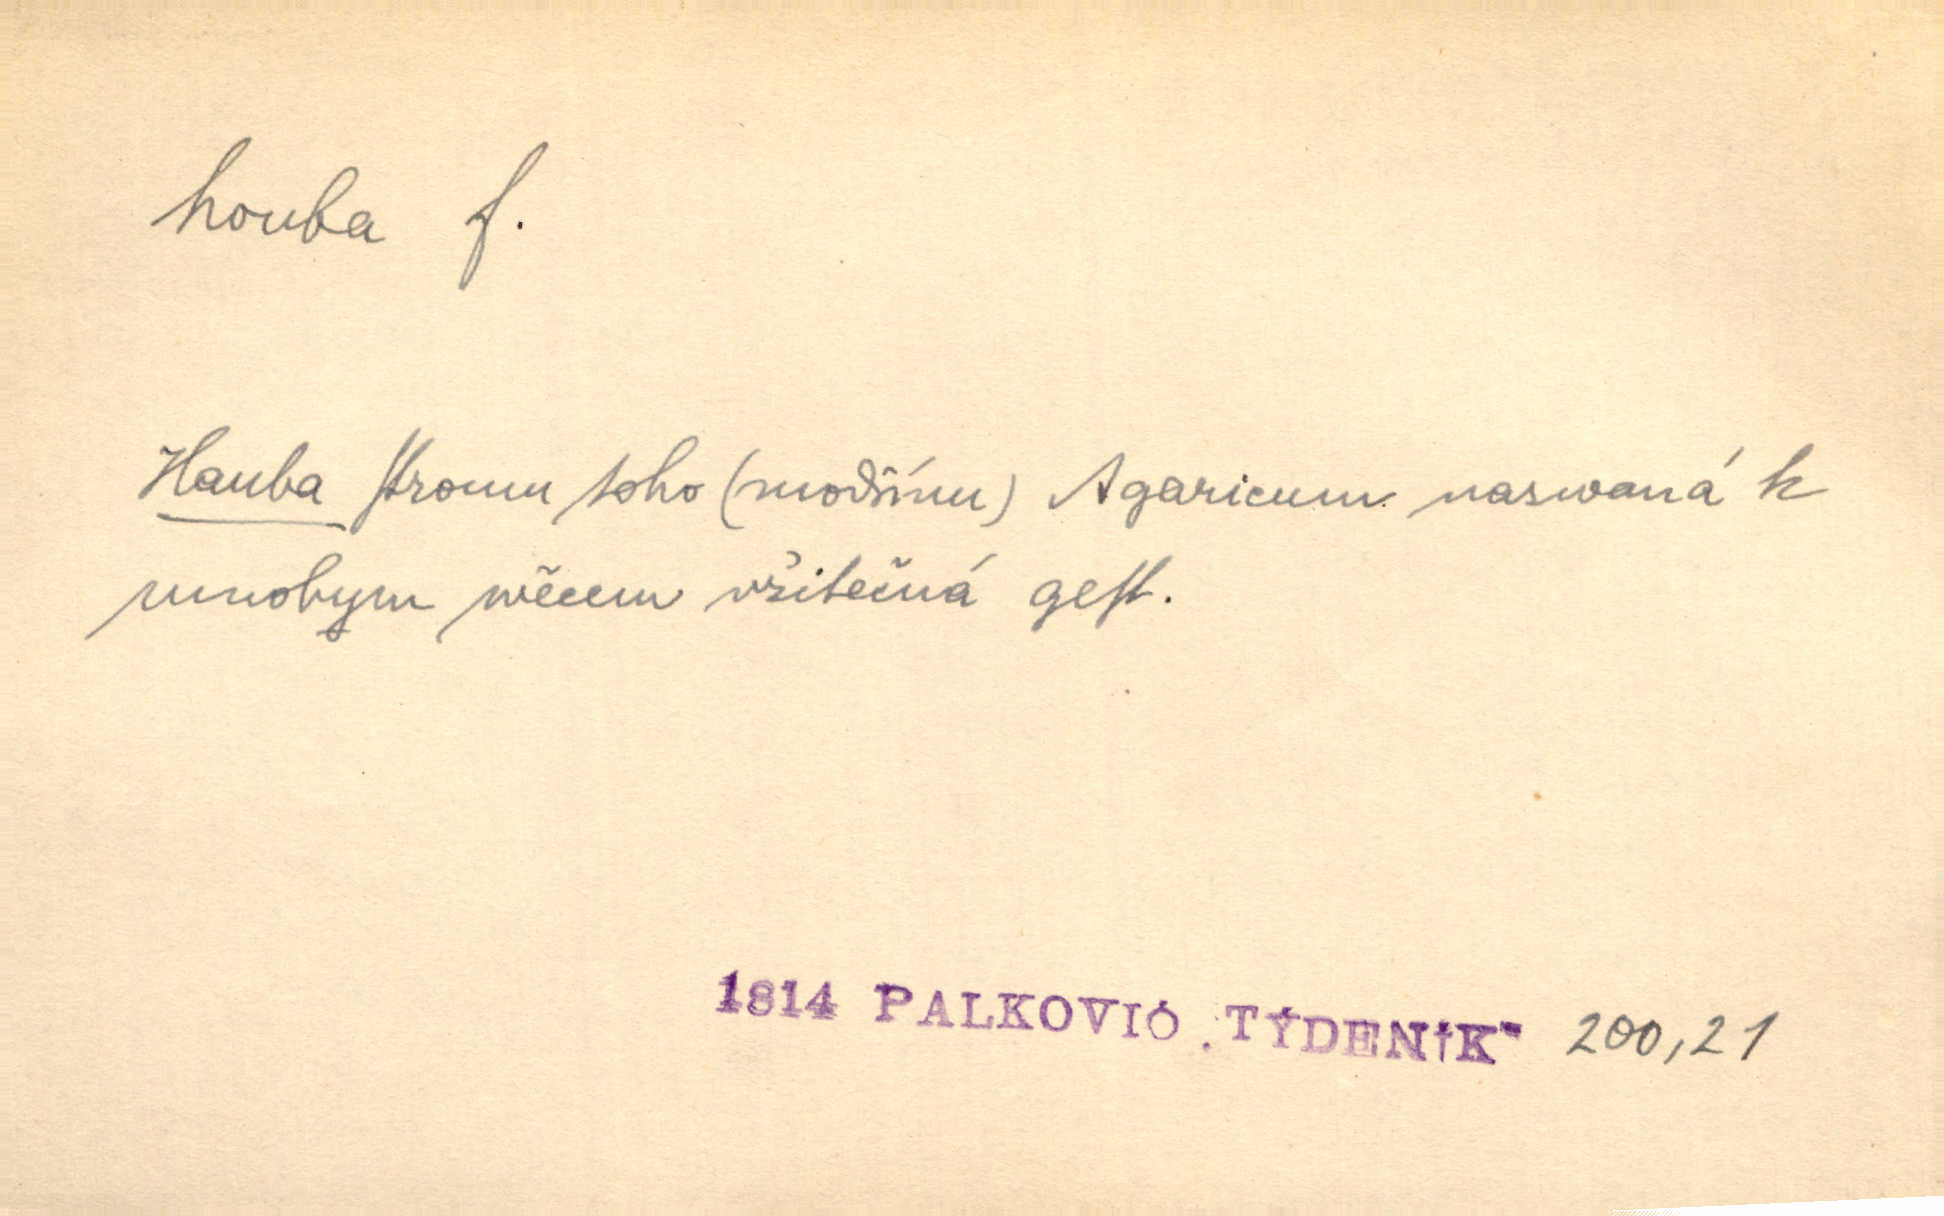 houba f.
Hauba ſtromu toho (modřínu) Agaricum naswaná k
mnohym wěcem vžitečná geſt.
1814 PALKOVIČ „TÝDENÍK" 200,21